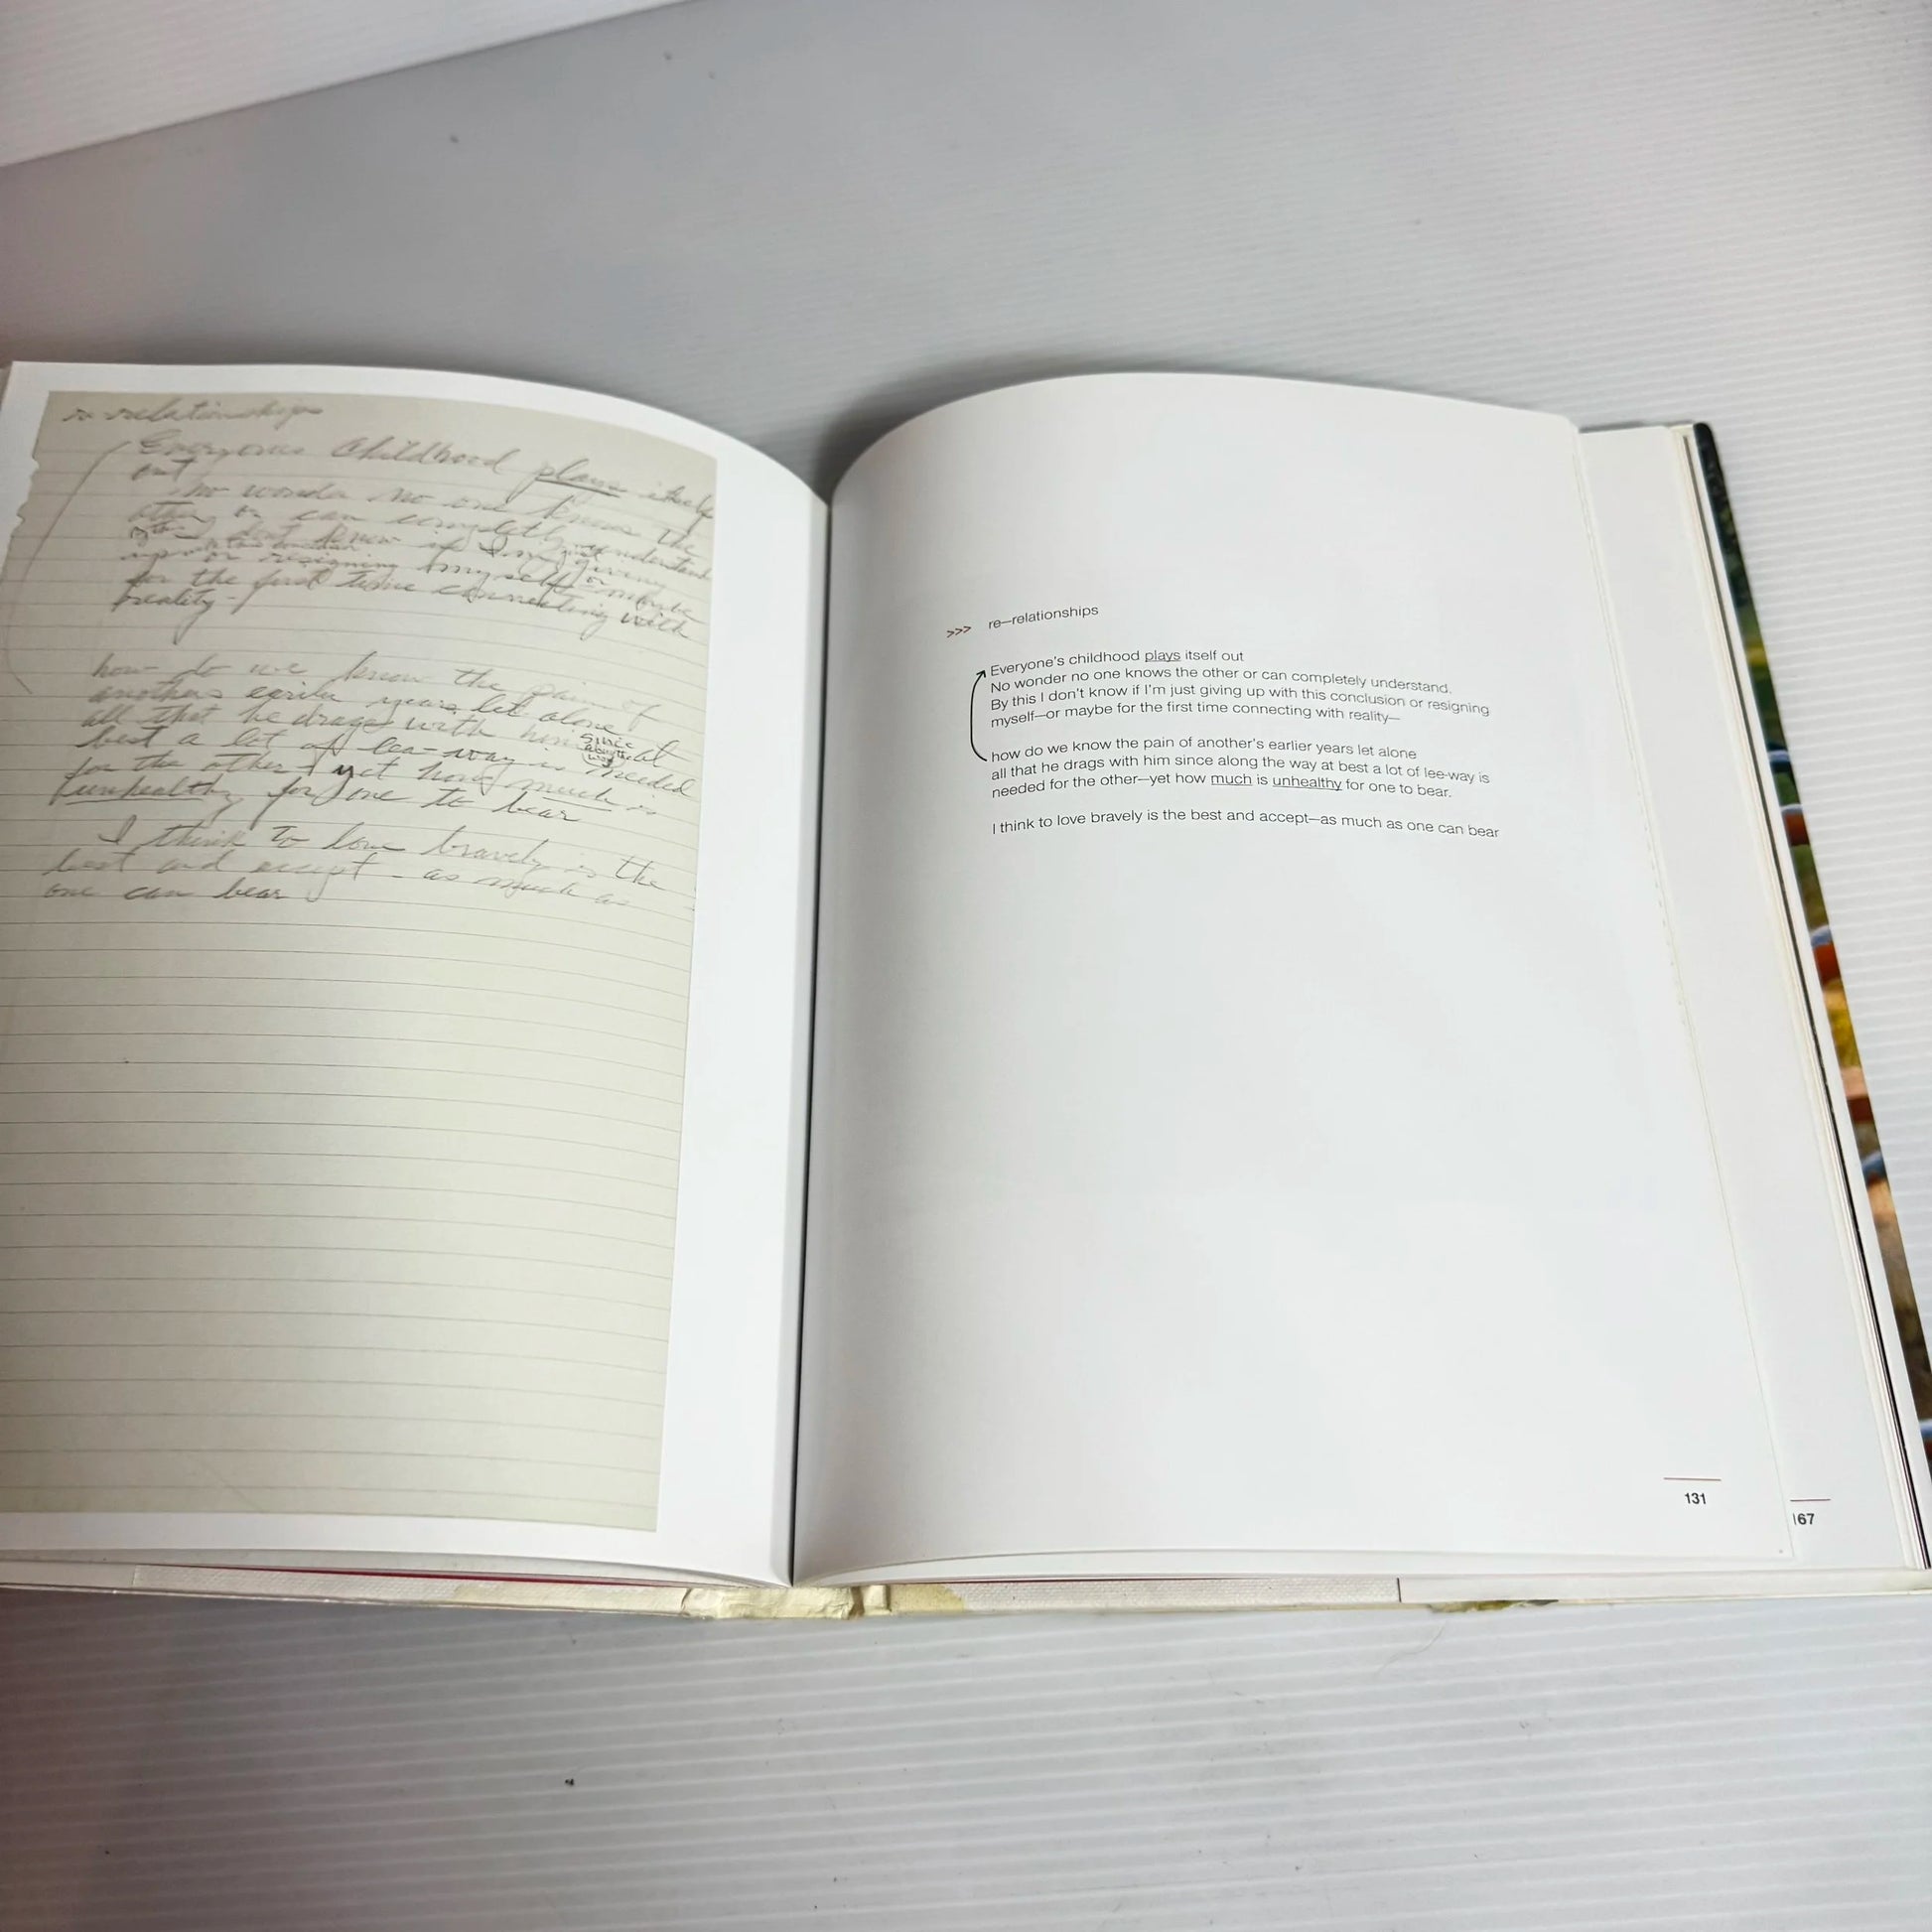 re relationships
Everyones Childhood plays itself
out
no wonder no one knows the
other or can completely understand
I don't know if I'm just giving
up with this conclusion or resigning myself or maybe
for the first time connecting with
reality-
how do we know the pain of
anothers earlier years let alone
all that he drags with him since along the way at
best a lot of lea-way is needed
for the other - yet how much is
unhealthy for one to bear
I think to love bravely is the
best and accept - as much as
one can bear
>>> re—relationships
Everyone's childhood plays itself out
No wonder no one knows the other or can completely understand.
By this I don't know if I'm just giving up with this conclusion or resigning
myself—or maybe for the first time connecting with reality—
how do we know the pain of another's earlier years let alone
all that he drags with him since along the way at best a lot of lee-way is
needed for the other—yet how much is unhealthy for one to bear.
I think to love bravely is the best and accept—as much as one can bear
131
167